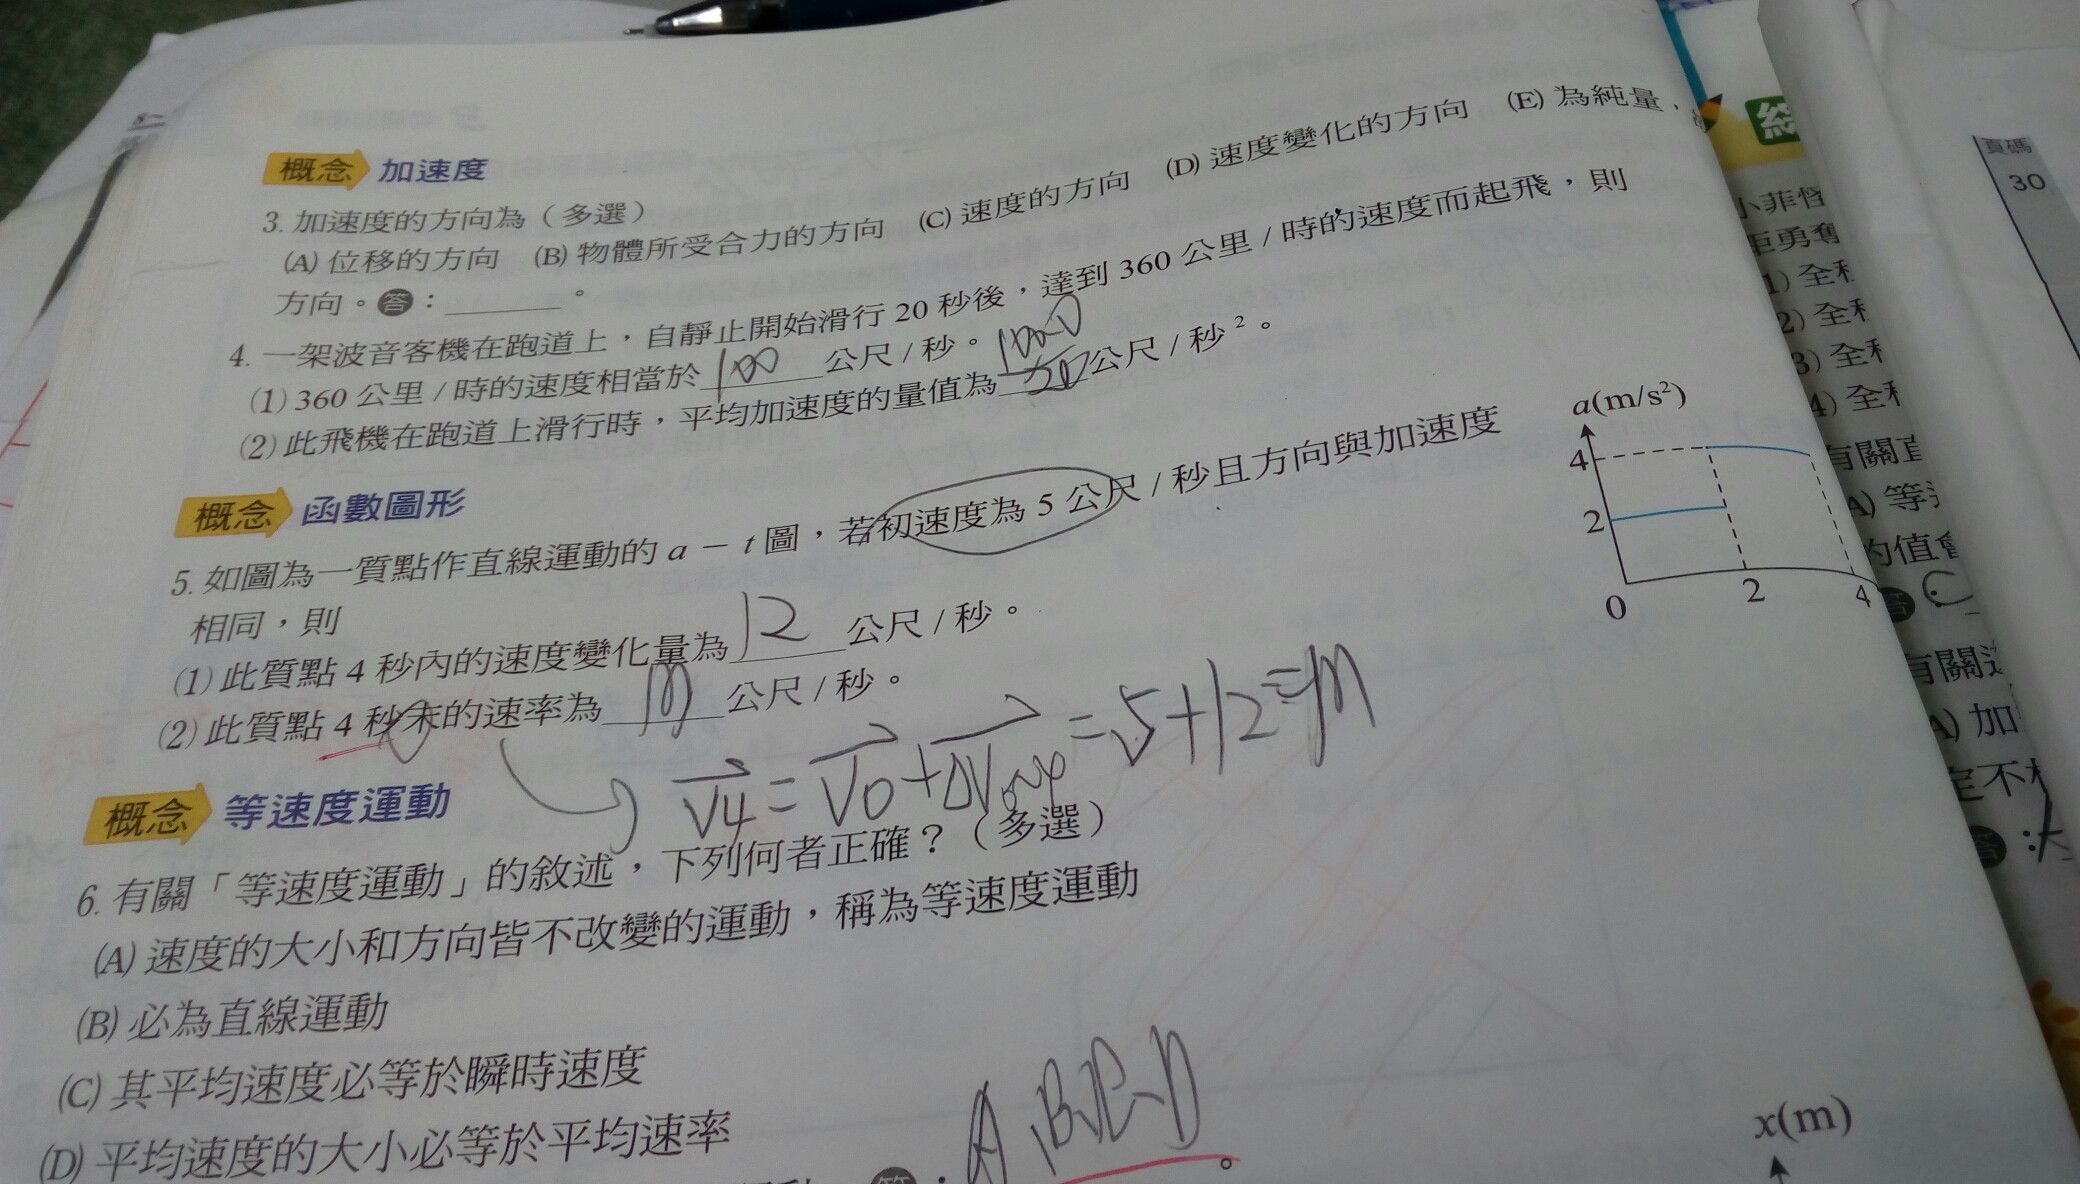 概念 加速度
3. 加速度的方向為（多選）
(A) 位移的方向 (B) 物體所受合力的方向 (C) 速度的方向 (D) 速度變化的方向 (E) 為純量，
方向。答：______。
4. 一架波音客機在跑道上，自靜止開始滑行 20 秒後，達到 360 公里 / 時的速度而起飛，則
(1) 360 公里 / 時的速度相當於 100 公尺 / 秒。
(2) 此飛機在跑道上滑行時，平均加速度的量值為 公尺 / 秒²。
概念 函數圖形
5. 如圖為一質點作直線運動的 a − t 圖，若初速度為 5 公尺 / 秒且方向與加速度
相同，則
(1) 此質點 4 秒內的速度變化量為 12 公尺 / 秒。
(2) 此質點 4 秒末的速率為 17 公尺 / 秒。
V4 = V0 + ΔV0~4 = 5+12=17
a(m/s²)
4
2
0 2 4
概念 等速度運動
6. 有關「等速度運動」的敘述，下列何者正確？（多選）
(A) 速度的大小和方向皆不改變的運動，稱為等速度運動
(B) 必為直線運動
(C) 其平均速度必等於瞬時速度
(D) 平均速度的大小必等於平均速率
答：A,B,C,D。
x(m)
綜
頁碼
30
小菲
拒勇奪
1) 全科
2) 全科
3) 全科
4) 全科
有關直
A) 等
的值會
答：
有關
A) 加
定不
答：